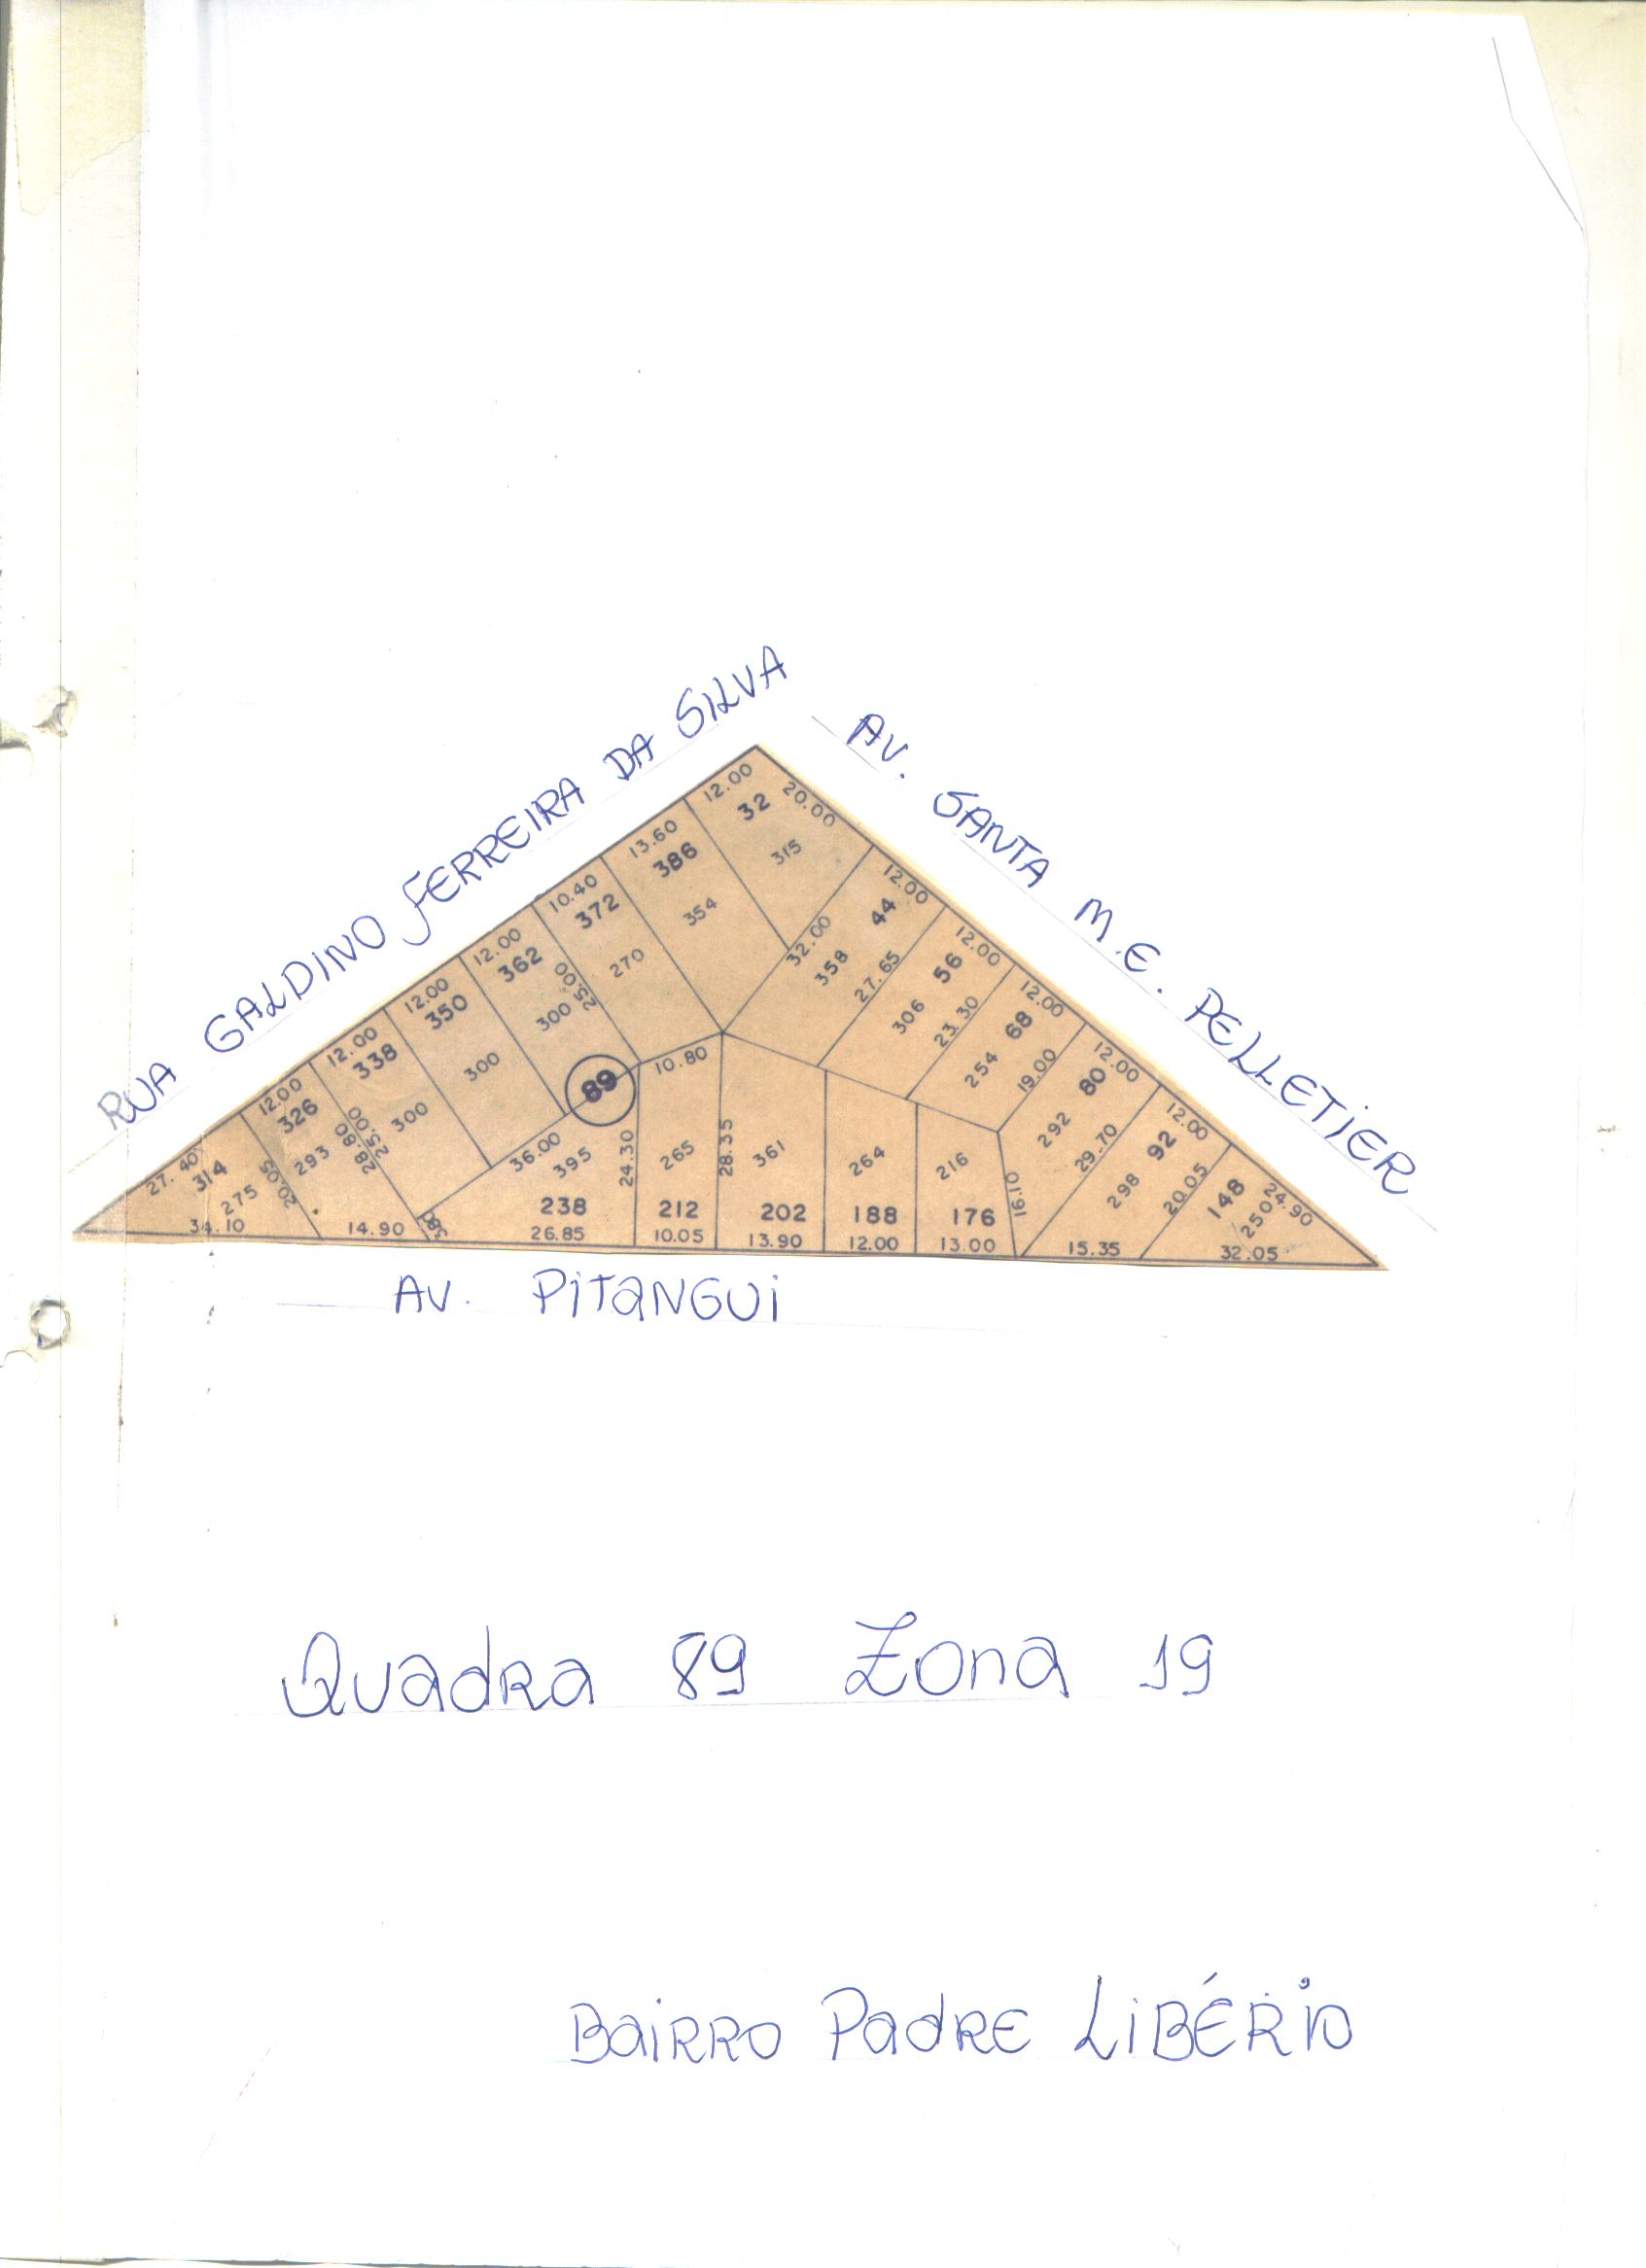 RUA GALDINO FERREIRA DA SILVA
AV. SANTA M.E. PELLETIER
12.00
32
20.00
315
13.60
386
354
10.40
372
270
12.00
362
300
25.00
12.00
350
300
12.00
338
300
25.00
28.80
12.00
326
293
20.05
27.40
314
275
34.10
14.90
32.00
12.00
44
358
27.65
12.00
56
306
23.30
12.00
68
254
19.00
12.00
80
292
29.70
12.00
92
298
20.05
15.35
148
24.90
250
32.05
89
10.80
36.00
395
238
26.85
24.30
265
212
10.05
28.35
361
202
13.90
264
188
12.00
216
176
13.00
16.10
AV. PITANGUI
Quadra 89 Zona 19
Bairro Padre Libério